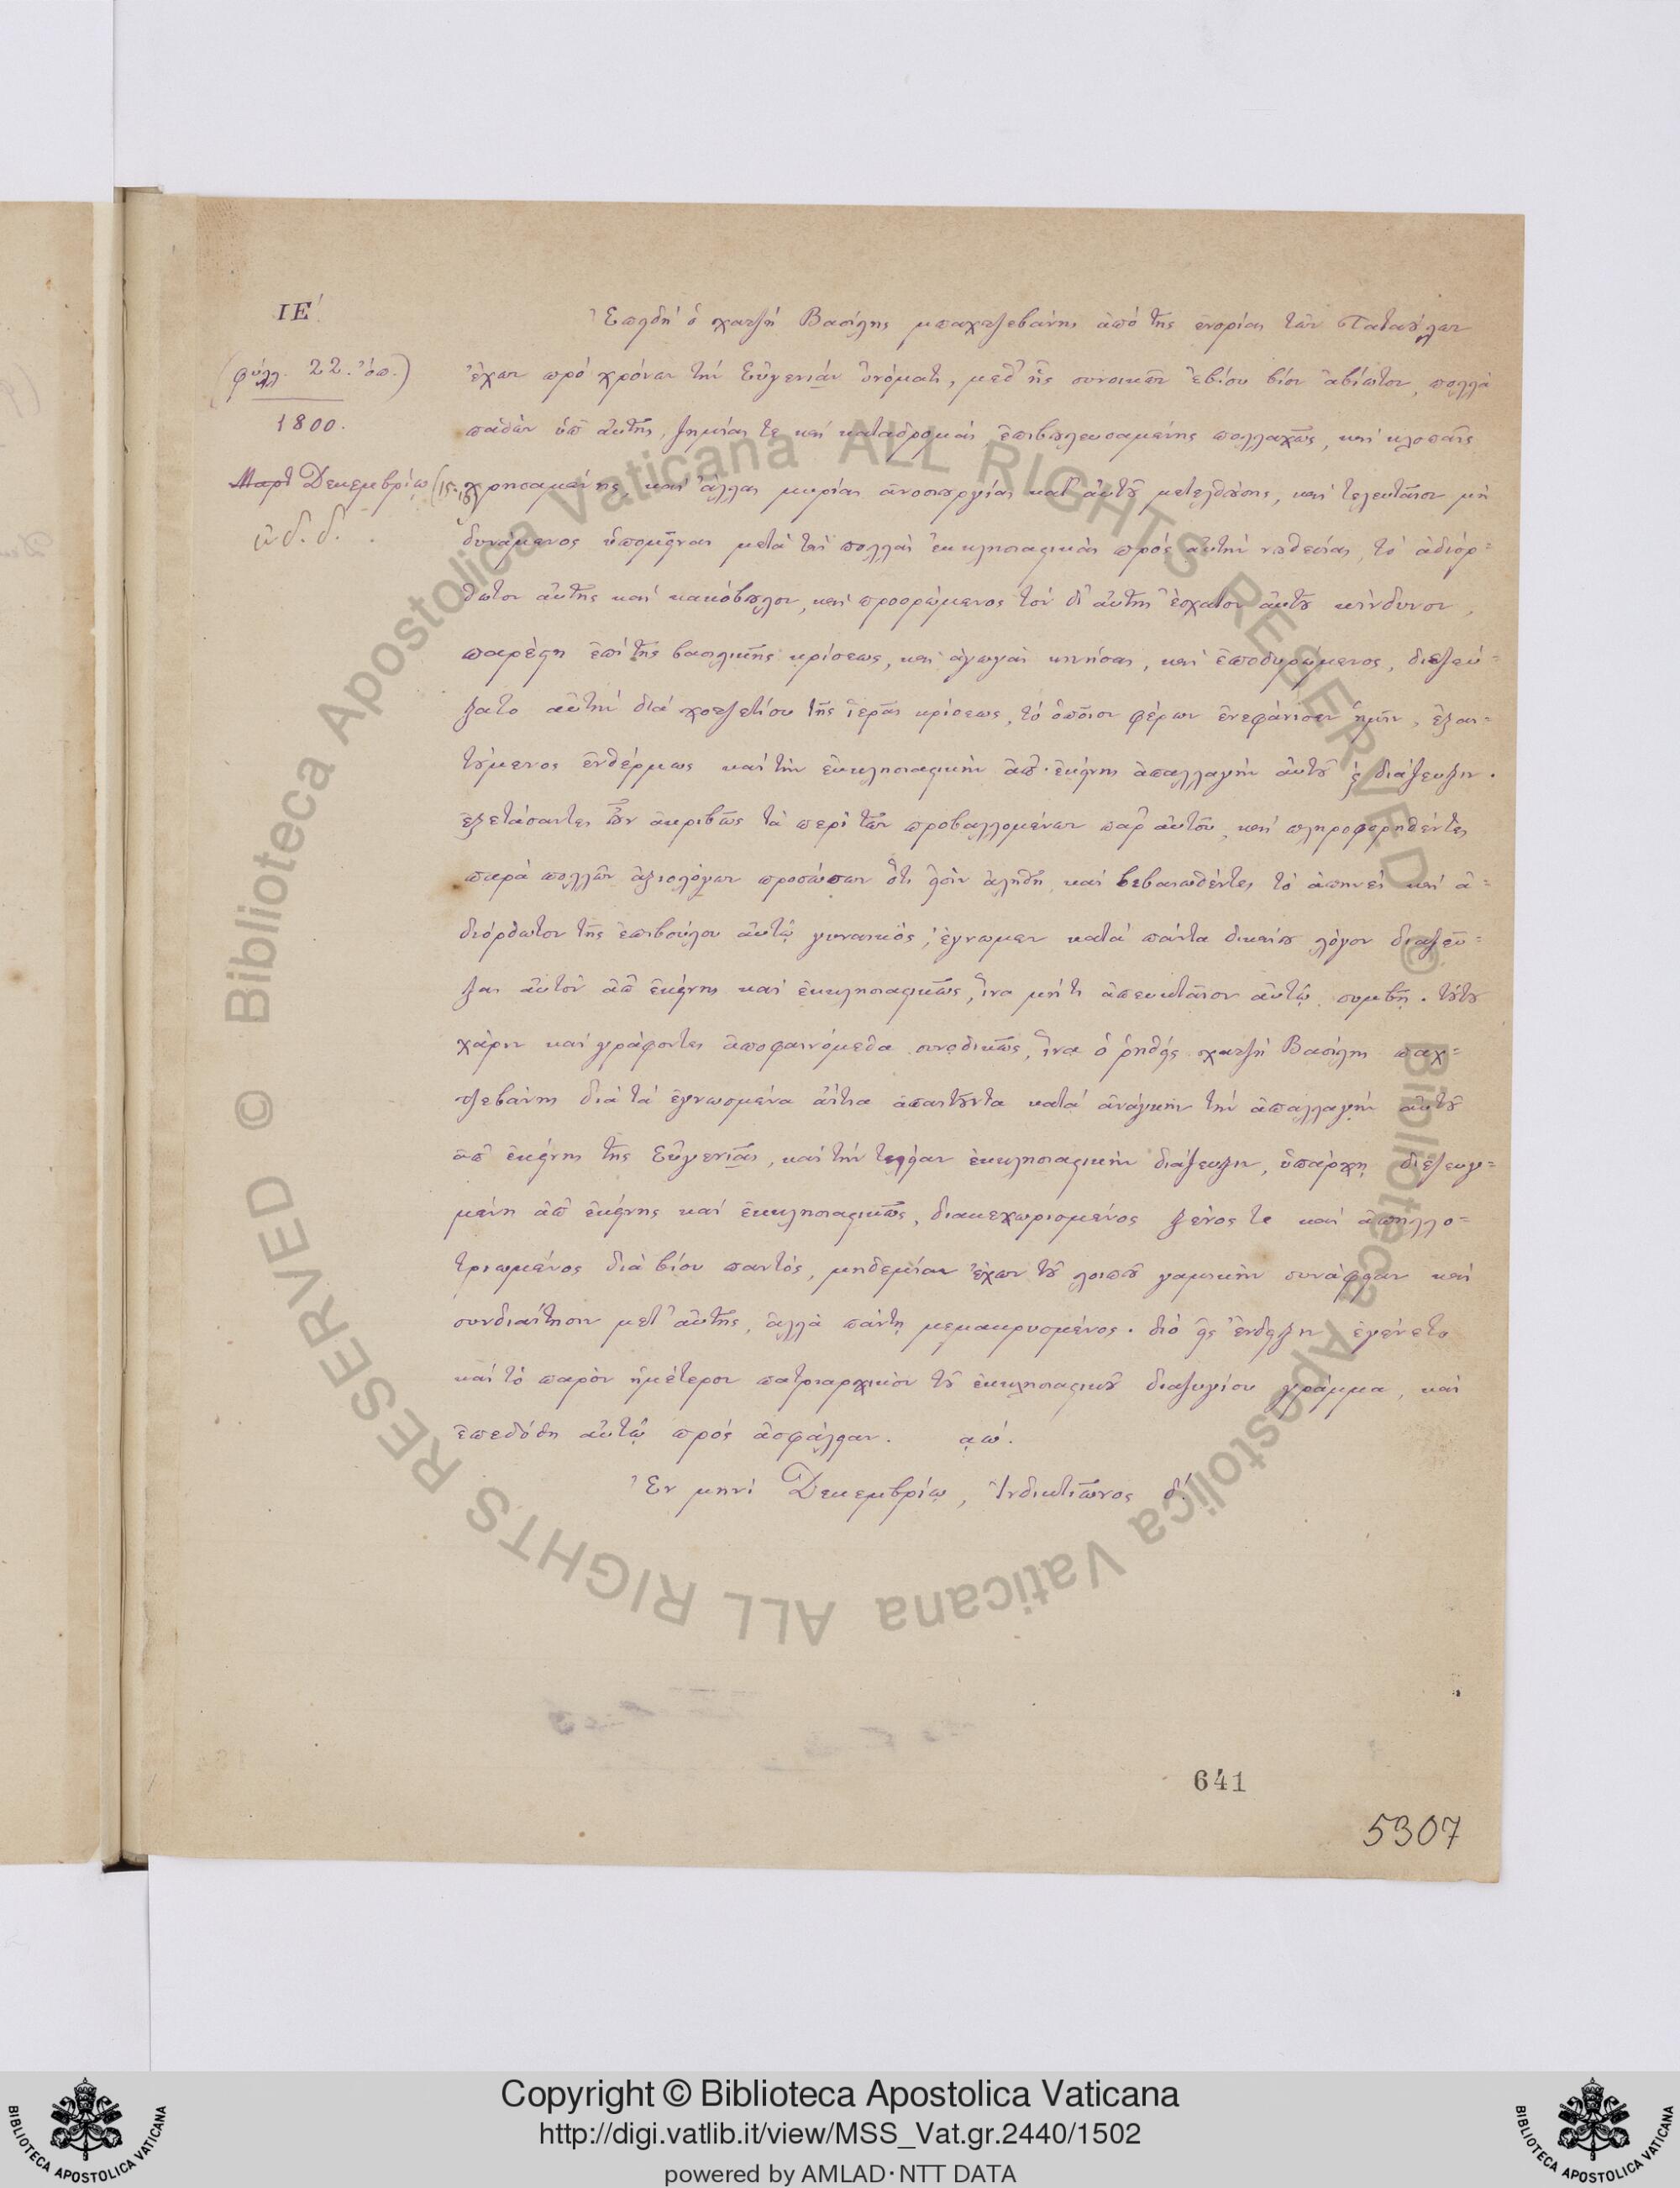 ΙΕʹ
(φύλλ. 22. ὄπ.)
1800.
Μαρτ Δεκεμβρίῳ (15-
ἰνδ. δ.
Ἐπειδὴ ὁ χατζῆ Βασίλης μπαχτζεβάνης ἀπὸ τῆς ἐνορίας τῶν Ταταούλων
ἔχων πρὸ χρόνων τὴν Εὐγενιὰν ὀνόματι, μεθ' ἧς συνοικῶν ἐβίου βίον ἀβίωτον, πολλὰ
παθὼν ὑπ' αὐτῆς, ζημίας τε καὶ καταδρομὰς ἐπιβουλευσαμένης πολλαχῶς, καὶ κλοπαῖς
χρησαμένης, καὶ ἄλλας μυρίας ἀνοσιουργίας κατ' αὐτοῦ μετελθούσης, καὶ τελευταῖον μὴ
δυνάμενος ὑπομεῖναι μετὰ τὰς πολλὰς ἐκκλησιαστικὰς πρὸς αὐτὴν νουθεσίας, τὸ ἀδιόρ=
θωτον αὐτῆς καὶ κακόβουλον, καὶ προορώμενος τὸν δι' αὐτῆς ἔσχατον αὐτοῦ κίνδυνον,
παρέστη ἐπὶ τῆς βασιλικῆς κρίσεως, καὶ ἀγωγὰς κινήσας, καὶ ἐποδυρώμενος, διεζεύ=
ξατο αὐτὴν διὰ χοτζετίου τῆς ἱερᾶς κρίσεως, τὸ ὁποῖον φέρων ἐνεφάνισεν ἡμῖν, ἐξαι=
τούμενος ἐνθέρμως καὶ τὴν ἐκκλησιαστικὴν ἀπ' ἐκείνης ἀπαλλαγὴν αὐτοῦ ϗ διάζευξιν.
ἐξετάσαντες οὖν ἀκριβῶς τὰ περὶ τῶν προβαλλομένων παρ' αὐτοῦ, καὶ πληροφορηθέντες
παρὰ πολλῶν ἀξιολόγων προσώπων ὅτι εἰσὶν ἀληθῆ, καὶ βεβαιωθέντες τὸ ἀπηνὲς καὶ ἀ=
διόρθωτον τῆς ἐπιβούλου αὐτῷ γυναικός, ἔγνωμεν κατὰ πάντα δικαίου λόγον διαζεῦ=
ξαι αὐτὸν ἀπ' ἐκείνης καὶ ἐκκλησιαστικῶς, ἵνα μή τι ἀπευκταῖον αὐτῷ συμβῇ. τούτου
χάριν καὶ γράφοντες ἀποφαινόμεθα συνοδικῶς, ἵνα ὁ ῥηθεὶς χατζῆ Βασίλης παχ=
τζεβάνης διὰ τὰ ἐγνωσμένα αἴτια ἀπαιτοῦντα κατὰ ἀνάγκην τὴν ἀπαλλαγὴν αὐτοῦ
ἀπ' ἐκείνης τῆς Εὐγενιᾶς, καὶ τὴν τελείαν ἐκκλησιαστικὴν διάζευξιν, ὑπάρχῃ διεζευγ=
μένη ἀπ' ἐκείνης καὶ ἐκκλησιαστικῶς, διακεχωρισμένος ξένος τε καὶ ἀπηλλο=
τριωμένος διὰ βίου παντός, μηδεμίαν ἔχων τοῦ λοιποῦ γαμικὴν συνάφειαν καὶ
συνδιαίτησιν μετ' αὐτῆς, ἀλλὰ πάντῃ μεμακρυσμένος. διὸ εἰς ἔνδειξιν ἐγένετο
καὶ τὸ παρὸν ἡμέτερον πατριαρχικὸν τοῦ ἐκκλησιαστικοῦ διαζυγίου γράμμα, καὶ
ἐπεδόθη αὐτῷ πρὸς ἀσφάλειαν. ͵αωʹ.
Ἐν μηνὶ Δεκεμβρίῳ, Ἰνδικτιῶνος δʹ.
641
5307
© Biblioteca Apostolica Vaticana ALL RIGHTS RESERVED
© Biblioteca Apostolica Vaticana ALL RIGHTS RESERVED
Copyright © Biblioteca Apostolica Vaticana
http://digi.vatlib.it/view/MSS_Vat.gr.2440/1502
powered by AMLAD·NTT DATA
BIBLIOTECA APOSTOLICA VATICANA
BIBLIOTECA APOSTOLICA VATICANA